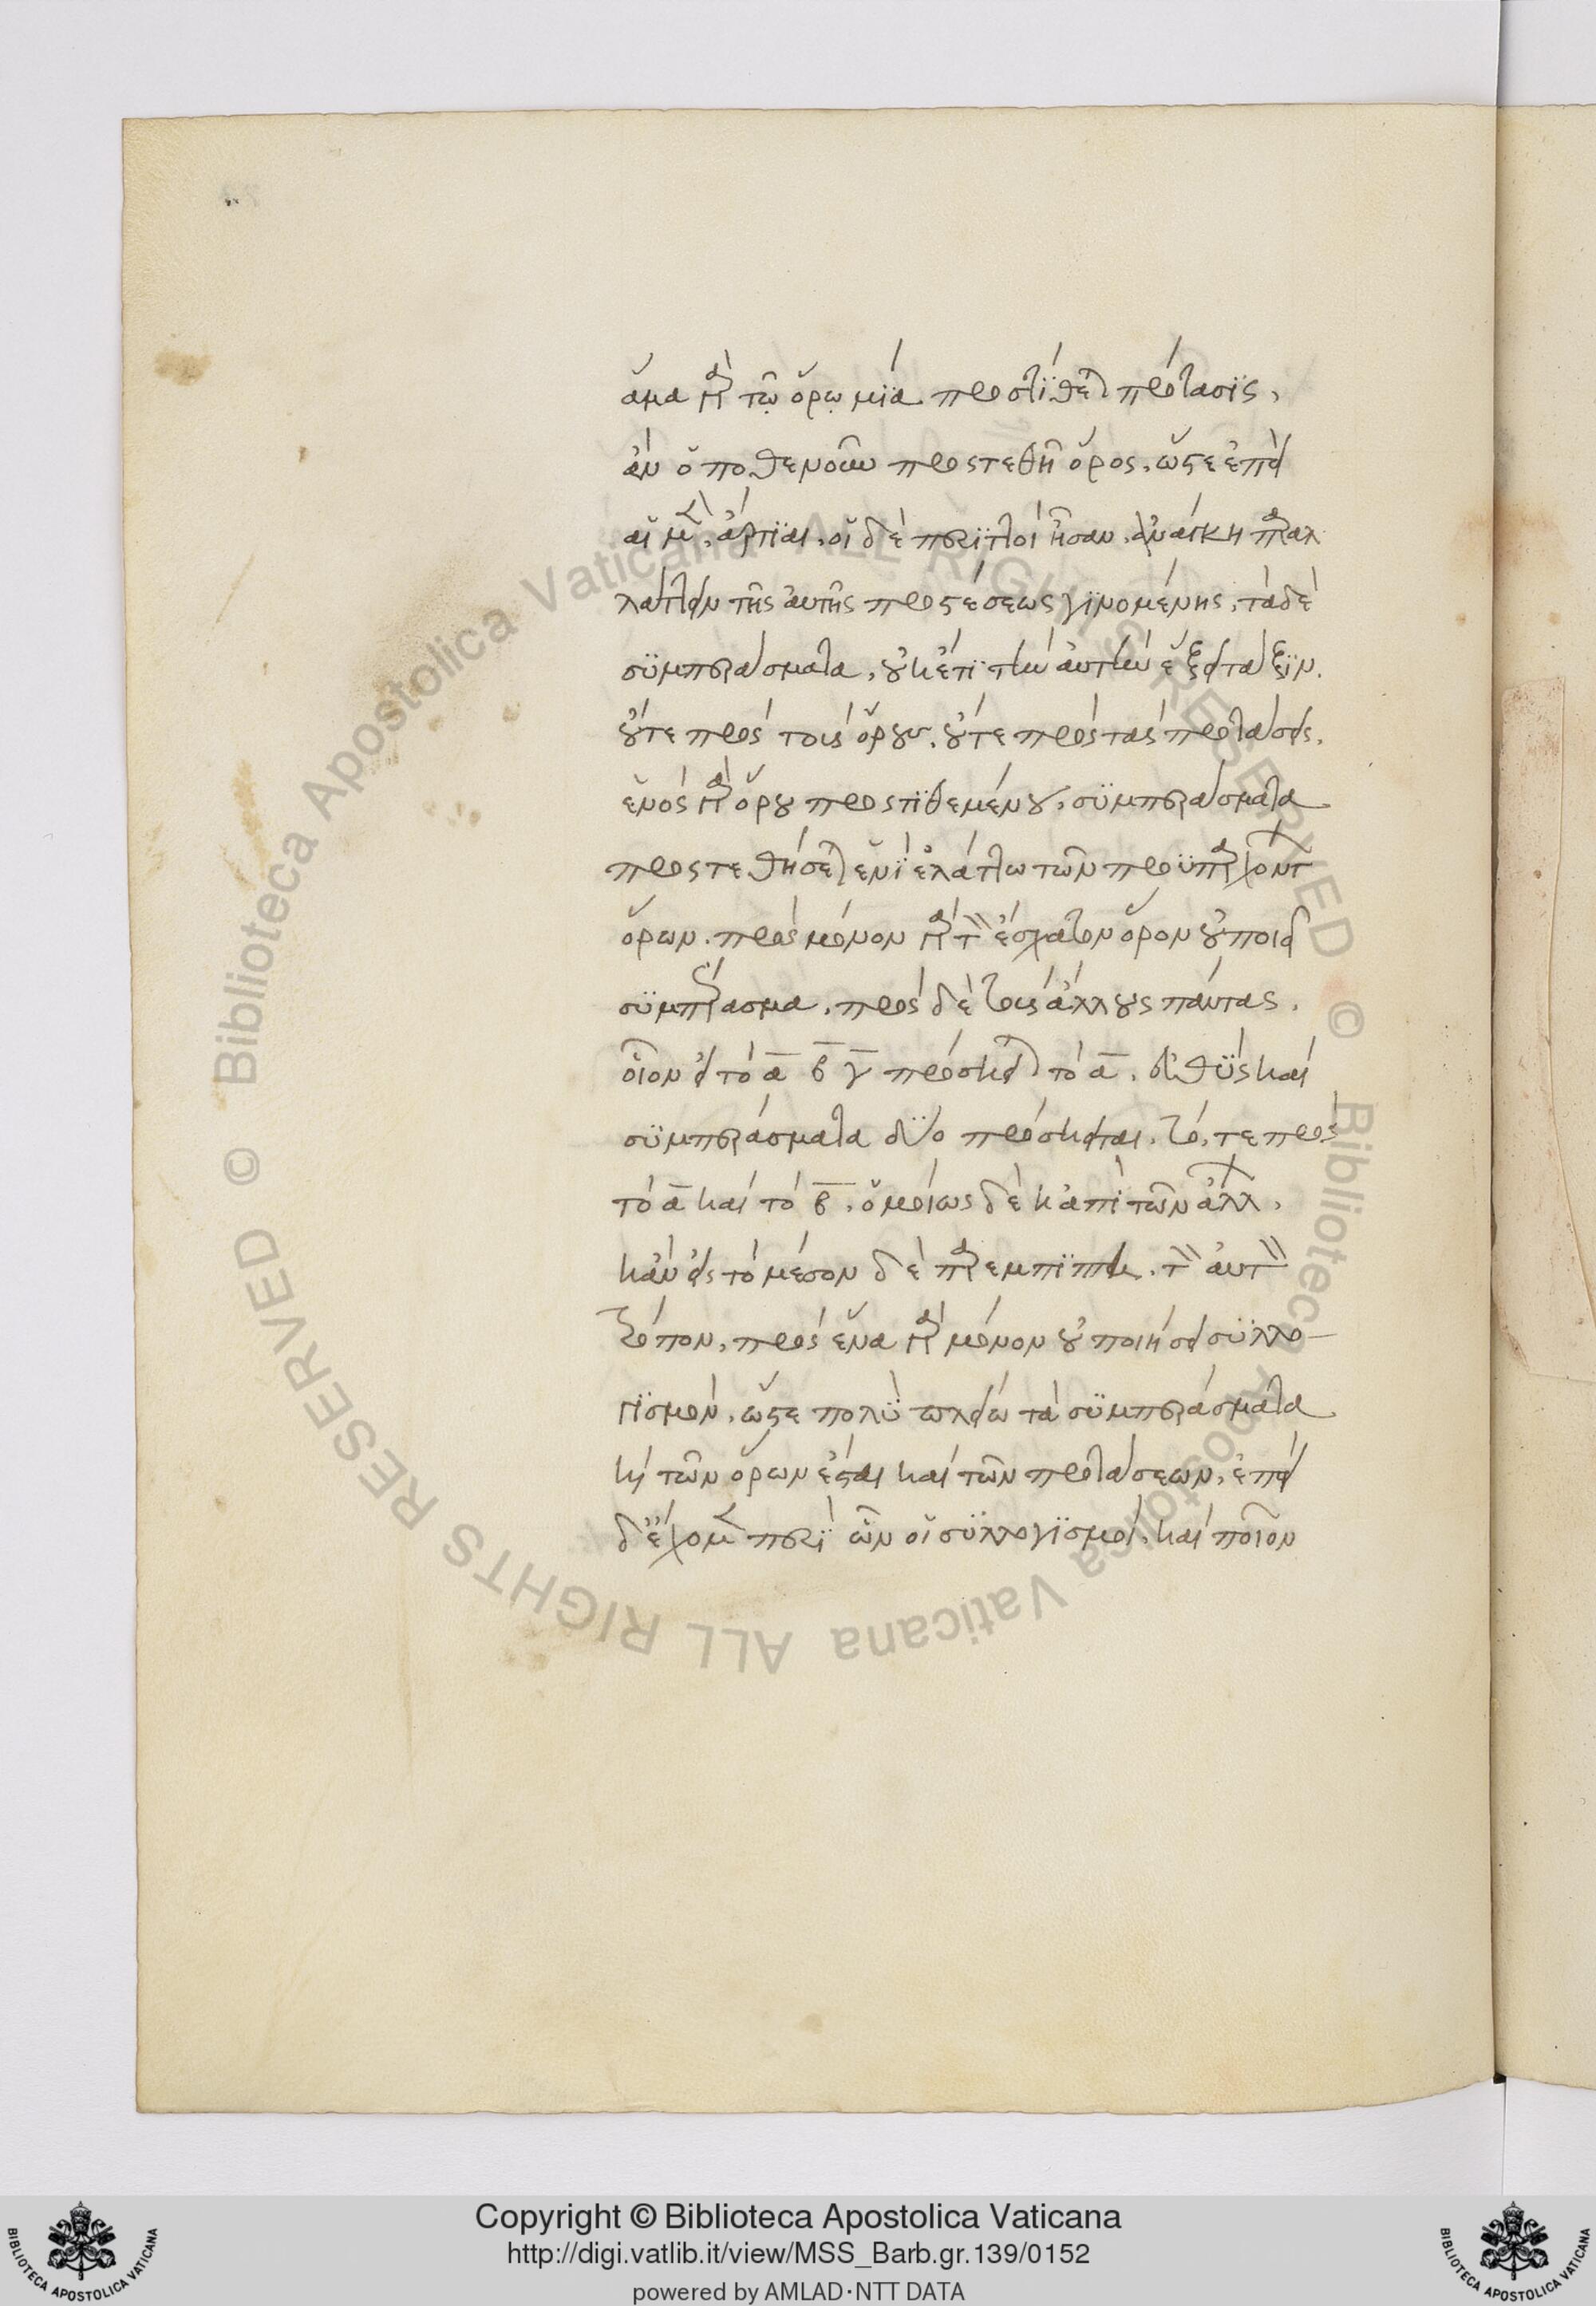 ἅμα γὰρ τῷ ὅρῳ μία προστίθεται πρότασις,
ἂν ὁποθενοῦν προστεθῇ ὅρος. ὥστε ἐπεὶ
αἱ μὲν ἄρτιαι, οἱ δὲ περιττοὶ ἦσαν, ἀνάγκη παραλ
λάττειν τῆς αὐτῆς προσθέσεως γινομένης. τὰ δὲ
συμπεράσματα, οὐκέτι τὴν αὐτὴν ἕξει τάξιν.
οὔτε πρὸς τοὺς ὅρους, οὔτε πρὸς τὰς προτάσεις.
ἑνὸς γὰρ ὅρου προστιθεμένου, συμπεράσματα
προστεθήσεται ἑνὶ ἐλάττω τῶν προϋπαρχόντων
ὅρων. πρὸς μόνον γὰρ τὸν ἔσχατον ὅρον οὐ ποιεῖ
συμπέρασμα, πρὸς δὲ τοὺς ἄλλους πάντας.
οἷον εἰ τὸ α β γ πρόσκειται τὸ α, εὐθὺς καὶ
συμπεράσματα δύο πρόσκειται, τό, τε πρὸς
τὸ α καὶ τὸ β. ὁμοίως δὲ κἀπὶ τῶν ἄλλων,
κἂν εἰς τὸ μέσον δὲ παρεμπίπτῃ, τὸν αὐτὸν
τρόπον, πρὸς ἕνα γὰρ μόνον οὐ ποιήσει συλλο-
γισμόν. ὥστε πολὺ πλείω τὰ συμπεράσματα
καὶ τῶν ὅρων ἔσται καὶ τῶν προτάσεων. ἐπεὶ
δ' ἔχομεν περὶ ὧν οἱ συλλογισμοί, καὶ ποῖον
© Biblioteca Apostolica Vaticana ALL RIGHTS RESERVED © Biblioteca Apostolica Vaticana ALL RIGHTS RESERVED
Copyright © Biblioteca Apostolica Vaticana
http://digi.vatlib.it/view/MSS_Barb.gr.139/0152
powered by AMLAD·NTT DATA
BIBLIOTECA APOSTOLICA VATICANA
BIBLIOTECA APOSTOLICA VATICANA